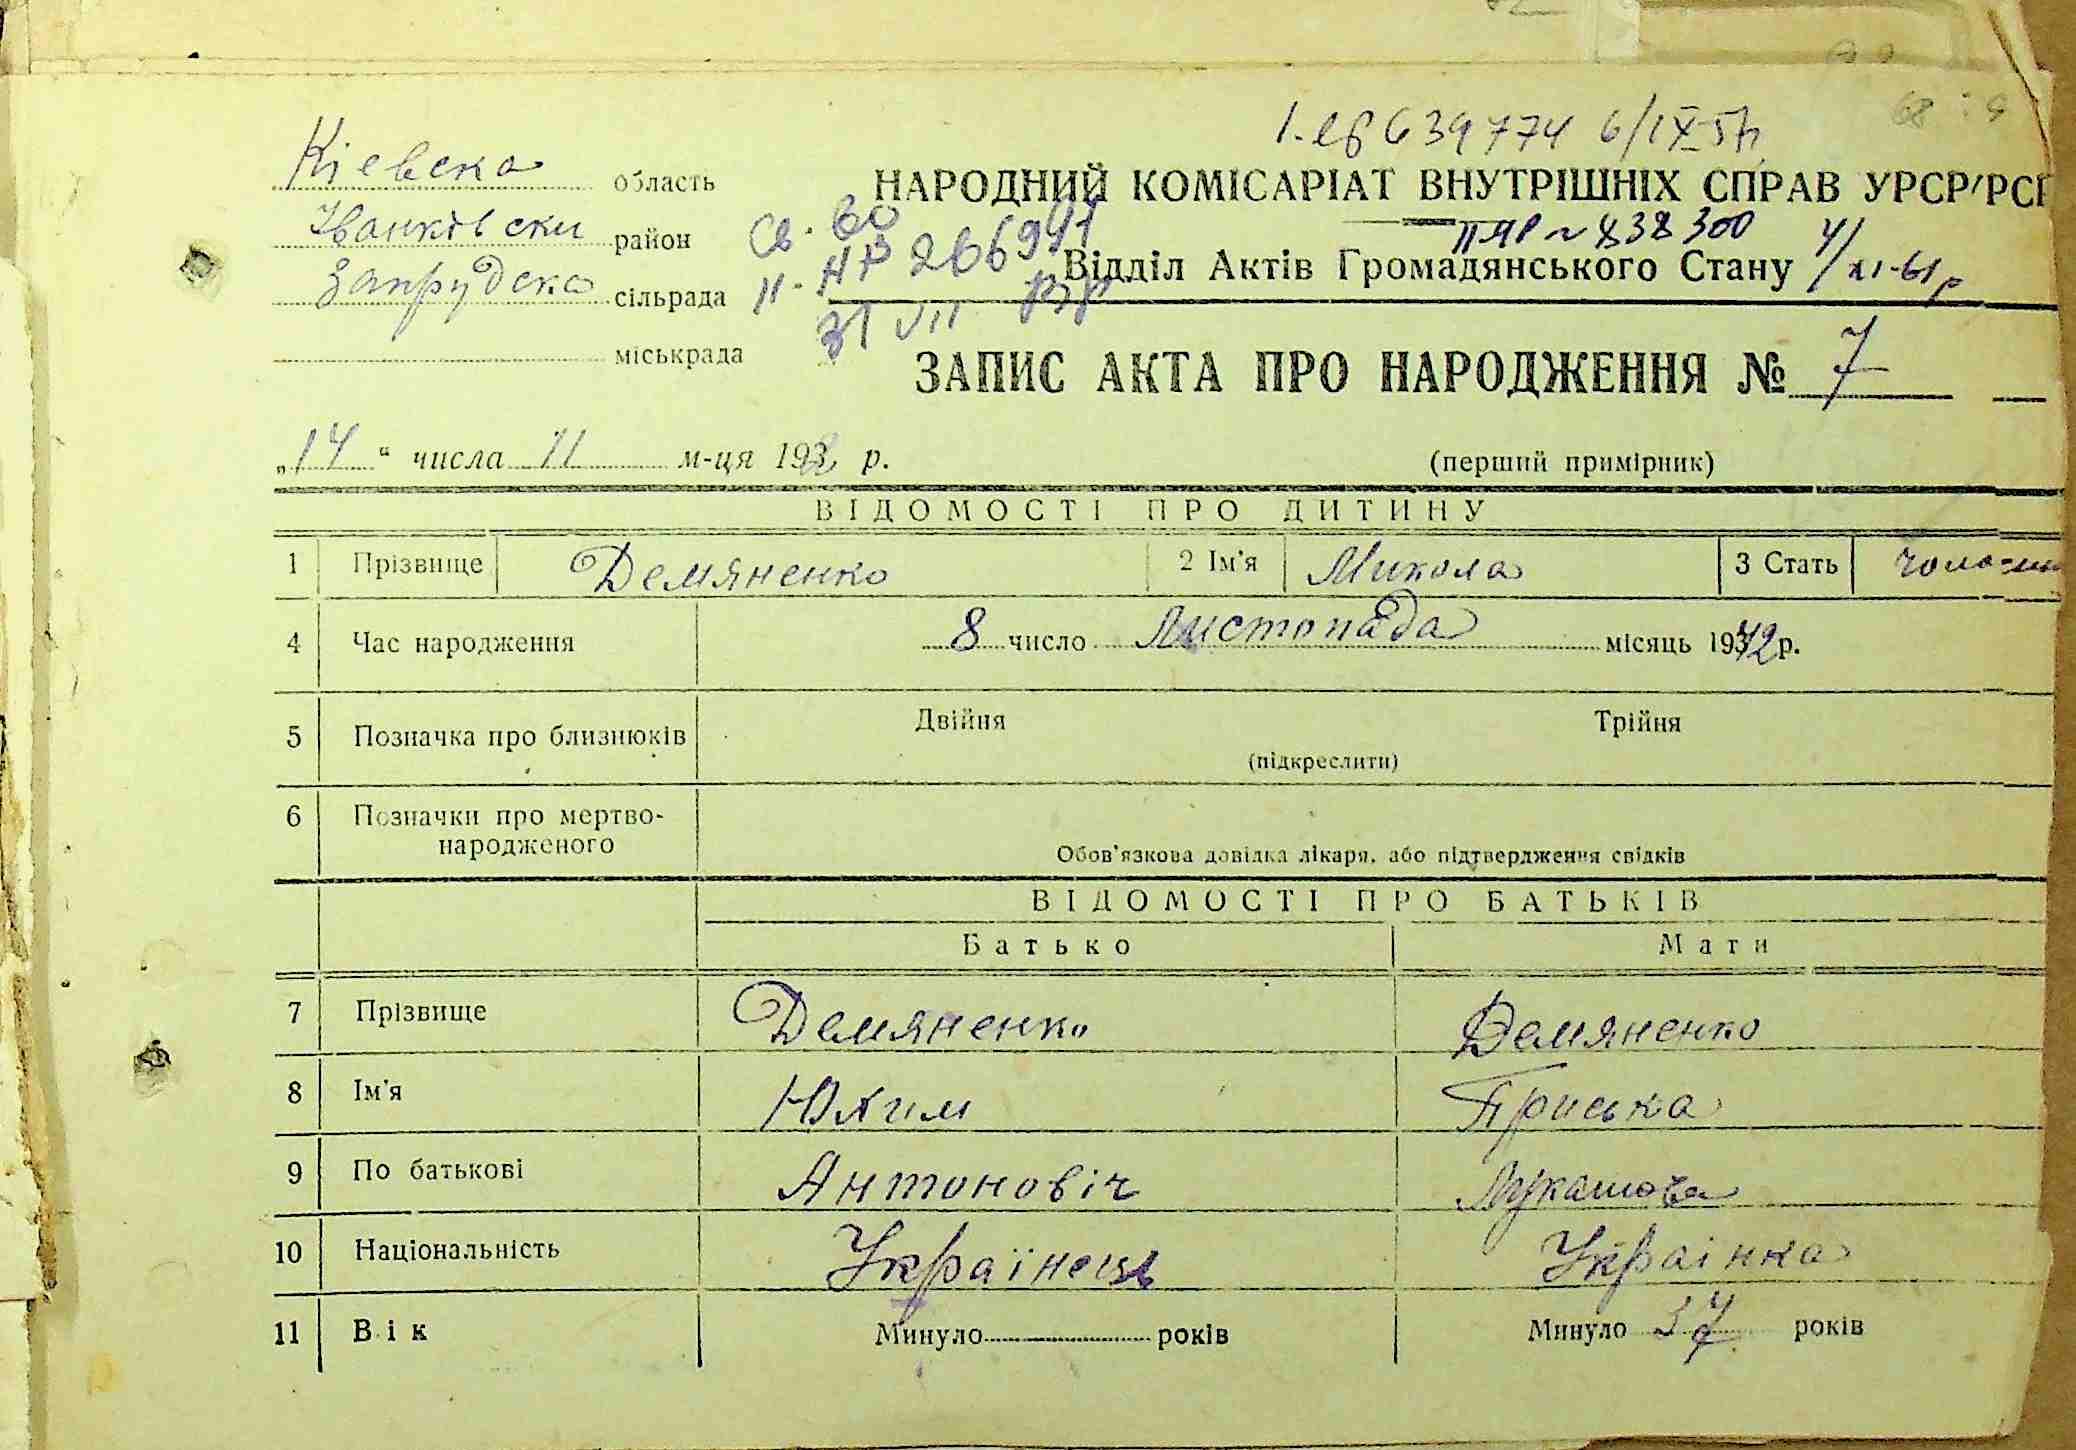 І-еб 639774 6/ІХ-57р
Кіевска область
НАРОДНИЙ КОМІСАРІАТ ВНУТРІШНІХ СПРАВ УРСР
Іванківски район
Св. во
ІІ-НР 266991
838300
Відділ Актів Громадянського Стану
4/ХІ-61р
Запрудска сільрада
31 VII
міськрада
ЗАПИС АКТА ПРО НАРОДЖЕННЯ № 7
„14“ числа 11 м-ця 193 р.
(перший примірник)
ВІДОМОСТІ ПРО ДИТИНУ
1 Прізвище Демяненко 2 Ім'я Микола 3 Стать
4 Час народження 8 число Листопада місяць 1942 р.
5 Позначка про близнюків Двійня Трійня
(підкреслити)
6 Позначки про мертво-
народженого
Обов'язкова довідка лікаря, або підтвердження свідків
ВІДОМОСТІ ПРО БАТЬКІВ
Батько Мати
7 Прізвище Демяненко Демяненко
8 Ім'я Юхим Приська
9 По батькові Антоновіч Лукашова
10 Національність Українець Украінка
11 Вік Минуло років Минуло 37 років